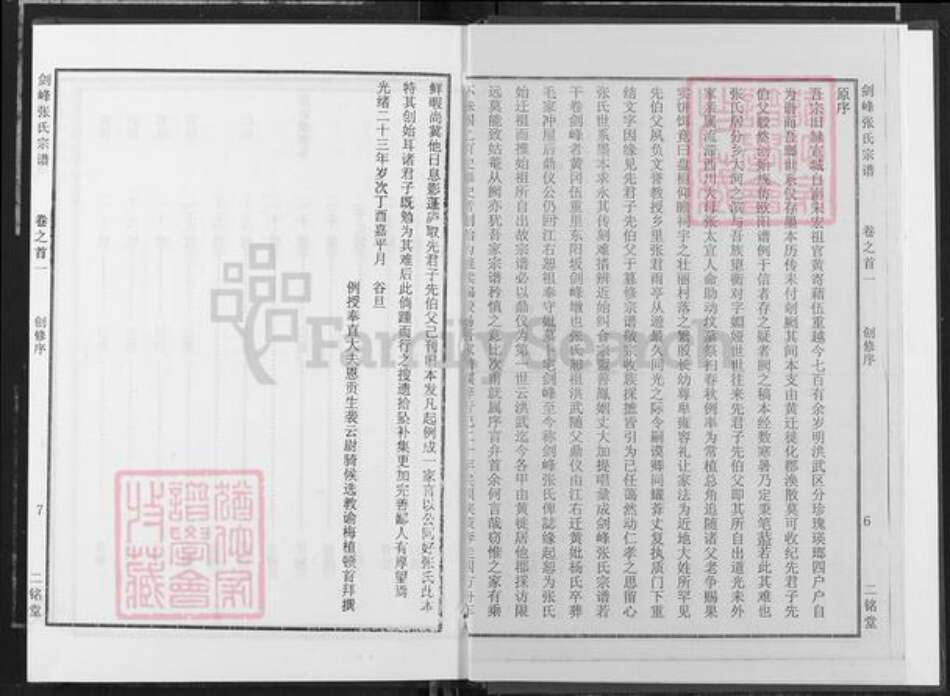 剑峰张氏宗谱 卷之首一 创修序 6 二铭堂
原序
吾宗旧隶宣城自南宋宏祖官黄寄藉伍重越今七百有余岁明洪武区分珍瑰瑛瑯四户户自
为谱而吾乡世系仅存墨本历传未付剞劂其间本支由黄迁徙化郡涣散莫可收纪先君子先
伯父毅然创始恢仿欧阳谱例于信者存之疑者阙之稿本经数寒暑乃定秉笔若此其难也
张氏居分乡大河之滨与吾族望衡对宇媚娅世世往来先君子先伯父即其所自出道光末外
家张太宜人命助动纹墓祭扫春秋例率为常植总角追随诸父老争赐果
实饼饵竟日盘桓仰瞻祠宇之壮丽村落之繁殷长幼尊卑雍容礼让家法为近地大姓所罕见
先伯父夙负文誉教授乡里张君雨亭从游最久同光之际令嗣谟卿同耀荪丈复执质门下重
结文字因缘见先君子先伯父子墓修宗谱敬宗收族採摭皆引为已任蔼然动仁孝之思留心
张氏世系墨本求永其传剞难措辨近始纠合宗盟善胤姻丈大加提唱彙成剑峰张氏宗谱若
干卷剑峰者黄冈伍重里东阳坂剑峰墩也张氏迦祖洪武随父鼎仪由江右迁黄妣杨氏卒葬
毛家冲屋后鼎仪公仍回江右迦祖奉守妣墓卜宅剑峰至今称剑峰张氏俾誌缘起恕为张氏
始迁祖而推始祖所自出故宗谱必以鼎仪为第一世云洪武迄今各甲由黄徙居他郡採访限
远莫能致姑菴从阙亦犹吾家宗谱矜慎之意比次甫就属序言弁首余何言哉窃惟之家有乘
鲜暇尚冀他日息影蓬庐取先君子先伯父己刊照本发凡起例成一家言以公同好张氏此本
特其创始耳诸君子既勉为其难后此倘踵而行之搜遗拾坠补集更加完善鄙人有厚望焉
光绪二十三年岁次丁酉嘉平月 谷旦
例授奉直大夫恩贡生袭云尉骑候选教谕梅植顿首拜撰
剑峰张氏宗谱 卷之首一 创修序 7 二铭堂
FamilySearch